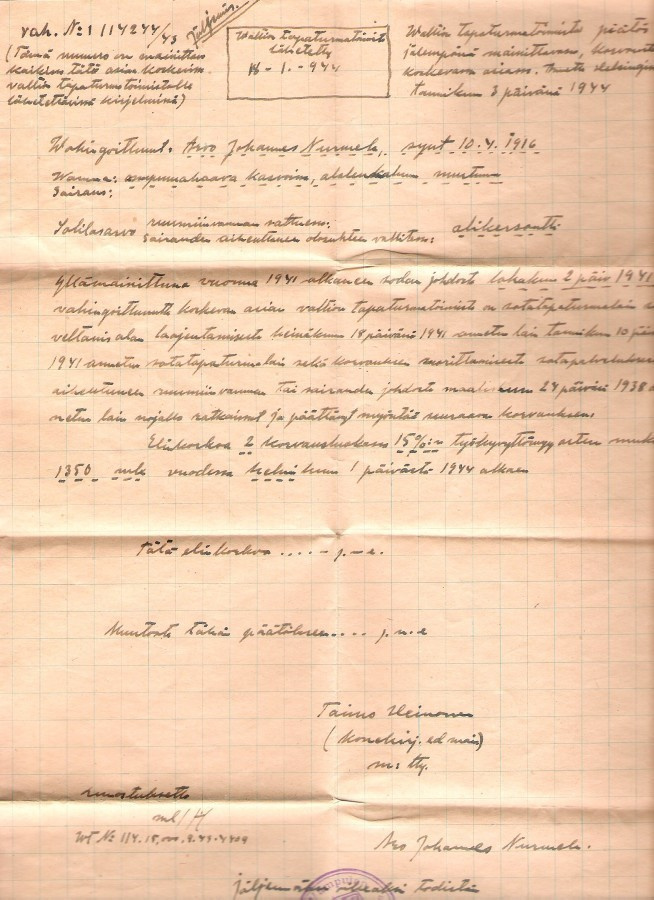 vah. № 1/14244/43
Jäljennös.
(Tämä numero on mainittava
kaikissa tätä asiaa koskevissa
valtion tapaturmatoimistolle
lähetettävissä kirjelmissä)
Valtion tapaturmatoimist
lähetetty
-1.-944
Valtion tapaturmatoimiston päätös
jälempänä mainittavassa, korvausta
koskevassa asiassa. Annettu Helsingin
tammikuun 3 päivänä 1944
Vahingoittunut: Arvo Johannes Nurmela, synt 10.4.1916
Vamma: ampumahaava kasvoissa, alaleukaluun murtuma
Sairaus:
Sotilasarvo ruumiinvamman sattuessa:
Sairauden aiheuttaneen olosuhteen vallitessa: alikersantti
Yllämainittuna vuonna 1941 alkaneen sodan johdosta lokakuun 2 päiv 1941
vahingoittunutta koskevan asian valtion tapaturmatoimisto on sotatapaturmalain
veltamisalan laajentamisesta heinäkuun 18 päivänä 1941 annetun lain tammikuun 10
1941 annetun sotatapaturmalain sekä korvauksen suorittamisesta sotapalveluksen
aiheutuneen ruumiinvamman tai sairauden johdosta maaliskuun 24 päivänä 1938
netun lain nojalla ratkaissut ja päättänyt myöntää seuraavan korvauksen:
Elinkorkoa 2 korvausluokassa 15%:n työkyvyttömyysasteen
1350 mk vuodessa helmikuun 1 päivästä 1944 alkaen
Tätä elinkorkoa .... j.n.e.
Muutosta tähän päätökseen .... j.n.e
Taimo Heinonen
(Konekirj. ed mais)
m: tty.
ml/H
WT № 114.15,000.9.43.4409
Arvo Johannes Nurmela.
Jäljennöksen oikeaksi todistaa